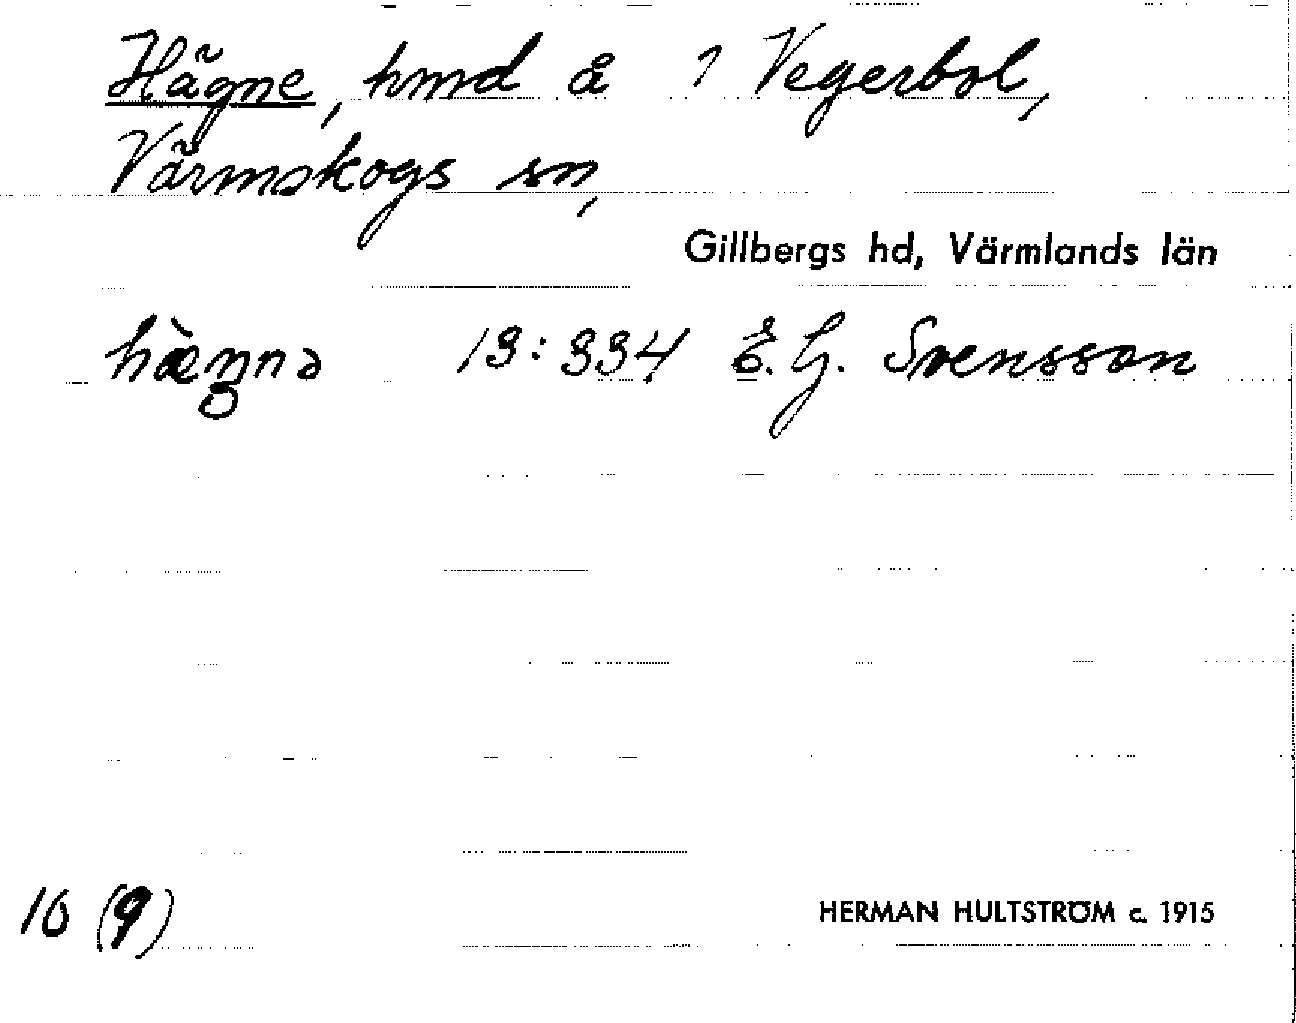 Hägne, hmd å 1 Vegerbol,
Värmskogs sn,
Gillbergs hd, Värmlands län
hæ̀ŋnə 13:334 E. G. Svensson
10 (9) HERMAN HULTSTRÖM c. 1915